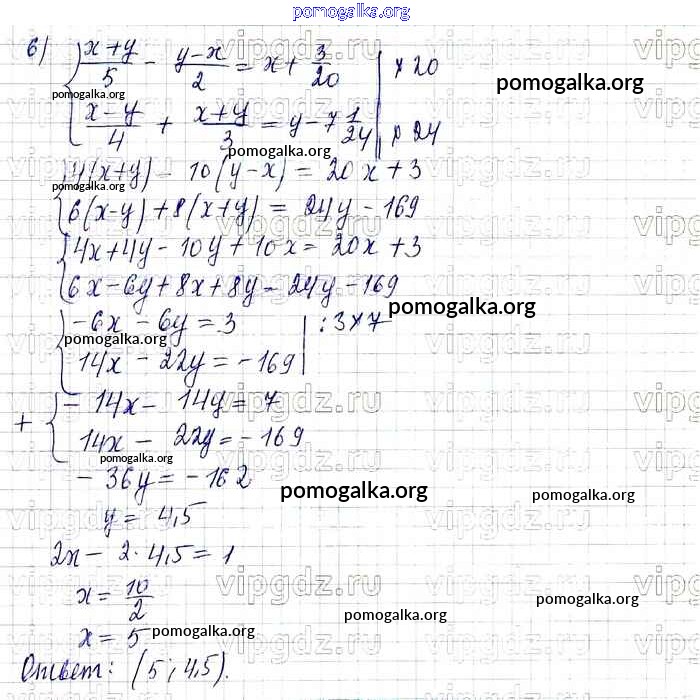 pomogalka.org
б) { (x+y)/5 - (y-x)/2 = x + 3/20 | × 20
pomogalka.org
pomogalka.org
(x-y)/4 + (x+y)/3 = y - 7 1/24 | × 24
pomogalka.org
pomogalka.org
{ 4(x+y) - 10(y-x) = 20x + 3
pomogalka.org
6(x-y) + 8(x+y) = 24y - 169
{ 4x + 4y - 10y + 10x = 20x + 3
6x - 6y + 8x + 8y = 24y - 169
pomogalka.org
{ -6x - 6y = 3 | : 3 × 7
pomogalka.org
14x - 22y = -169
+ { - 14x - 14y = 7
14x - 22y = -169
pomogalka.org
- 36y = -162
pomogalka.org
pomogalka.org
y = 4,5
2x - 2 · 4,5 = 1
x = 10/2
pomogalka.org
pomogalka.org
x = 5
pomogalka.org
Ответ: (5; 4,5).
vipgdz.ru